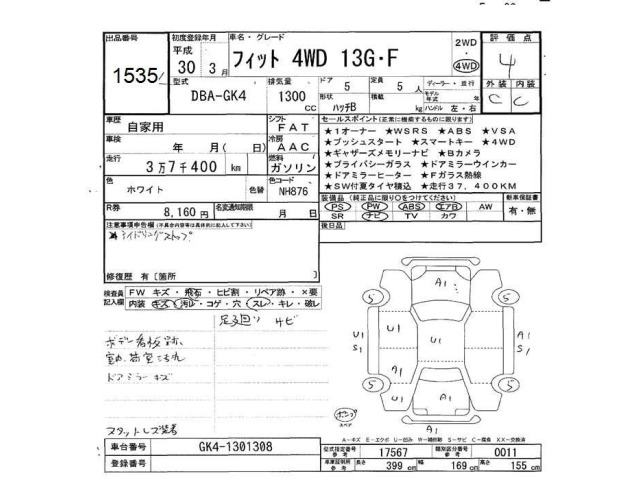 出品番号 1535
初度登録年月 平成 30年 3月
車名・グレード フィット 4WD 13G・F
2WD・4WD
評価点 4
型式 DBA-GK4
排気量 1300 CC
ドア 5
形状 ハッチB
定員 5 人
積載 kg
ディーラー・並行
モデル年式 年
ハンドル 左・右
外装 C 内装 C
車歴 自家用
シフト FAT
車検 年 月( 日)
冷房 AAC
走行 3万7千400 km
燃料 ガソリン
色 ホワイト 色替
色コード NH876
R券 8,160 円
名変通知期限 月 日
セールスポイント(正常に機能するものに限ります)
★1オーナー ★WSRS ★ABS ★VSA
★プッシュスタート ★スマートキー ★4WD
★ギャザーズメモリーナビ ★Bカメラ
★プライバシーガラス ★ドアミラーウインカー
★ドアミラーヒーター ★Fガラス熱線
★SW付夏タイヤ積込 ★走行37,400KM
装備品(純正品に限り○をつけてください)
PS PW ABS エアB AW
SR ナビ TV カワ
新車保証書 有・無
後日品
注意事項申告欄(不具合内容等は具体的に記入して下さい)
★アイドリングストップ
修復歴 有[箇所 ]
検査員記入欄
FW キズ・飛石・ヒビ割・リペア跡・×要
内装 キズ・汚レ・コゲ・穴・スレ・キレ・破レ
足廻り サビ
ボデー看板跡
室内、荷室こもれ
ドアミラーキズ
スタットレス装着
A1
5 5
U1 U1 U1 A1
S1 S1
A1
5 5
A1
A1
スペア
A-キズ E-エクボ U-凹み W-補修跡 S-サビ C-腐食 XX-交換済
車台番号 GK4-1301308
登録番号
型式指定番号 参考 17567
類別区分番号 参考 0011
車庫証明所 参考 長さ 399 cm 幅 169 cm 高さ 155 cm